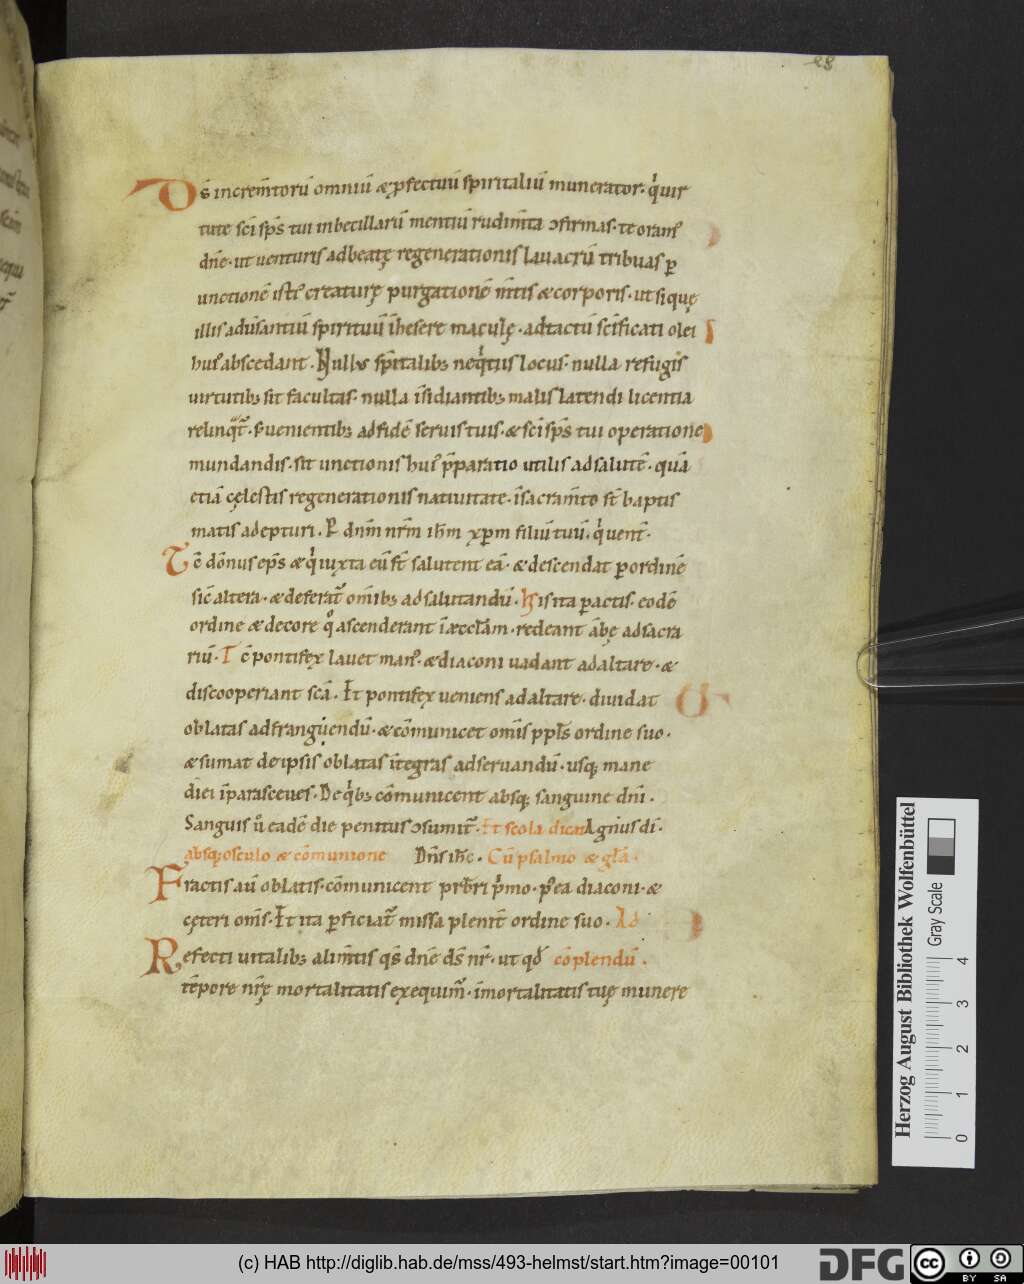 28
Ds̄ increm̄toru͞ omniu͞ & ꝓfectuu͞ spiritaliu͞ munerator. qui uir
tute sc̄i sp̄s tui inbecillaru͞ mentiu͞ rudim̄ta ↄfirmas. te oram᷒
dn̄e. ut uenturis ad beatę regenerationis lauacru͞ tribuas ꝑ
unctione͞ isti᷒ creaturę purgatione͞ m̄tis & corporis. ut si quę
illis adu͞santiu͞ spirituu͞ i͞hesere maculę. ad tactu͞ sc̄ificati olei
hui᷒ abscedant. Null᷒ sp̄italib; neq͛tiis locus. nulla refugis
uirtutib; sit facultas. nulla i͞sidiantib; malis latendi licentia
relinq͛t̄. S; uenientib; ad fide͞ seruis tuis. & sc̄i sp̄s tui operatione
mundandis. sit unctionis hui᷒ p̄paratio utilis ad salute͞. qua͞
etia͞ cęlestis regenerationis natiuitate. i͞ sacram̄to st̄ baptis
matis adepturi. P dn̄m nr̄m ih̄m xp̄m filiu͞ tuu͞. q͛ uent̄.
Tc̄ dōnus ep̄s & q͛ iuxta eu͞ st̄ salutent ea͞. & descendat ꝑ ordine͞
sic̄ altera. & deferat̄ om̄ib; ad salutandu͞. His ita ꝑactis. eode͞
ordine & decore q͛ ascenderant i͞ æccl̄am. redeant a͞be ad sacra
riu͞. Tc̄ pontifex lauet man᷒. & diaconi uadant ad altare. &
discooperiant sc̄a. Et pontifex ueniens ad altare. diuidat
oblatas ad franguendu͞. & co͞municet om̄is ppl̄s ordine suo.
& sumat de ipsis oblatas i͞tegras ad seruandu͞. usq; mane
diei i͞ parasceues. De q͛b; co͞municent absq; sanguine dn̄i.
Sanguis u͛ eade͞ die penitus ↄsumit̄. Et scola dicat Agn᷒ di͞.
absq; osculo & co͞munione Dn̄s ih̄c. Cu͞ psalmo & gl̄a.
Fractis au͞ oblatis. co͞municent prb̄ri p͛mo. p᷒ea diaconi. &
cęteri om̄s. Et ita ꝑficiat̄ missa plenit̄ ordine suo. Ad
Refecti uitalib; alim̄tis qs̄ dn̄e ds̄ nr̄. ut qd̄ co͞plendu͞.
te͞pore nr̄ę mortalitatis exequim̄. i͞mortalitatis tuę munere
Herzog August Bibliothek Wolfenbüttel
Gray Scale
0 1 2 3 4
(c) HAB http://diglib.hab.de/mss/493-helmst/start.htm?image=00101
DFG
cc BY SA